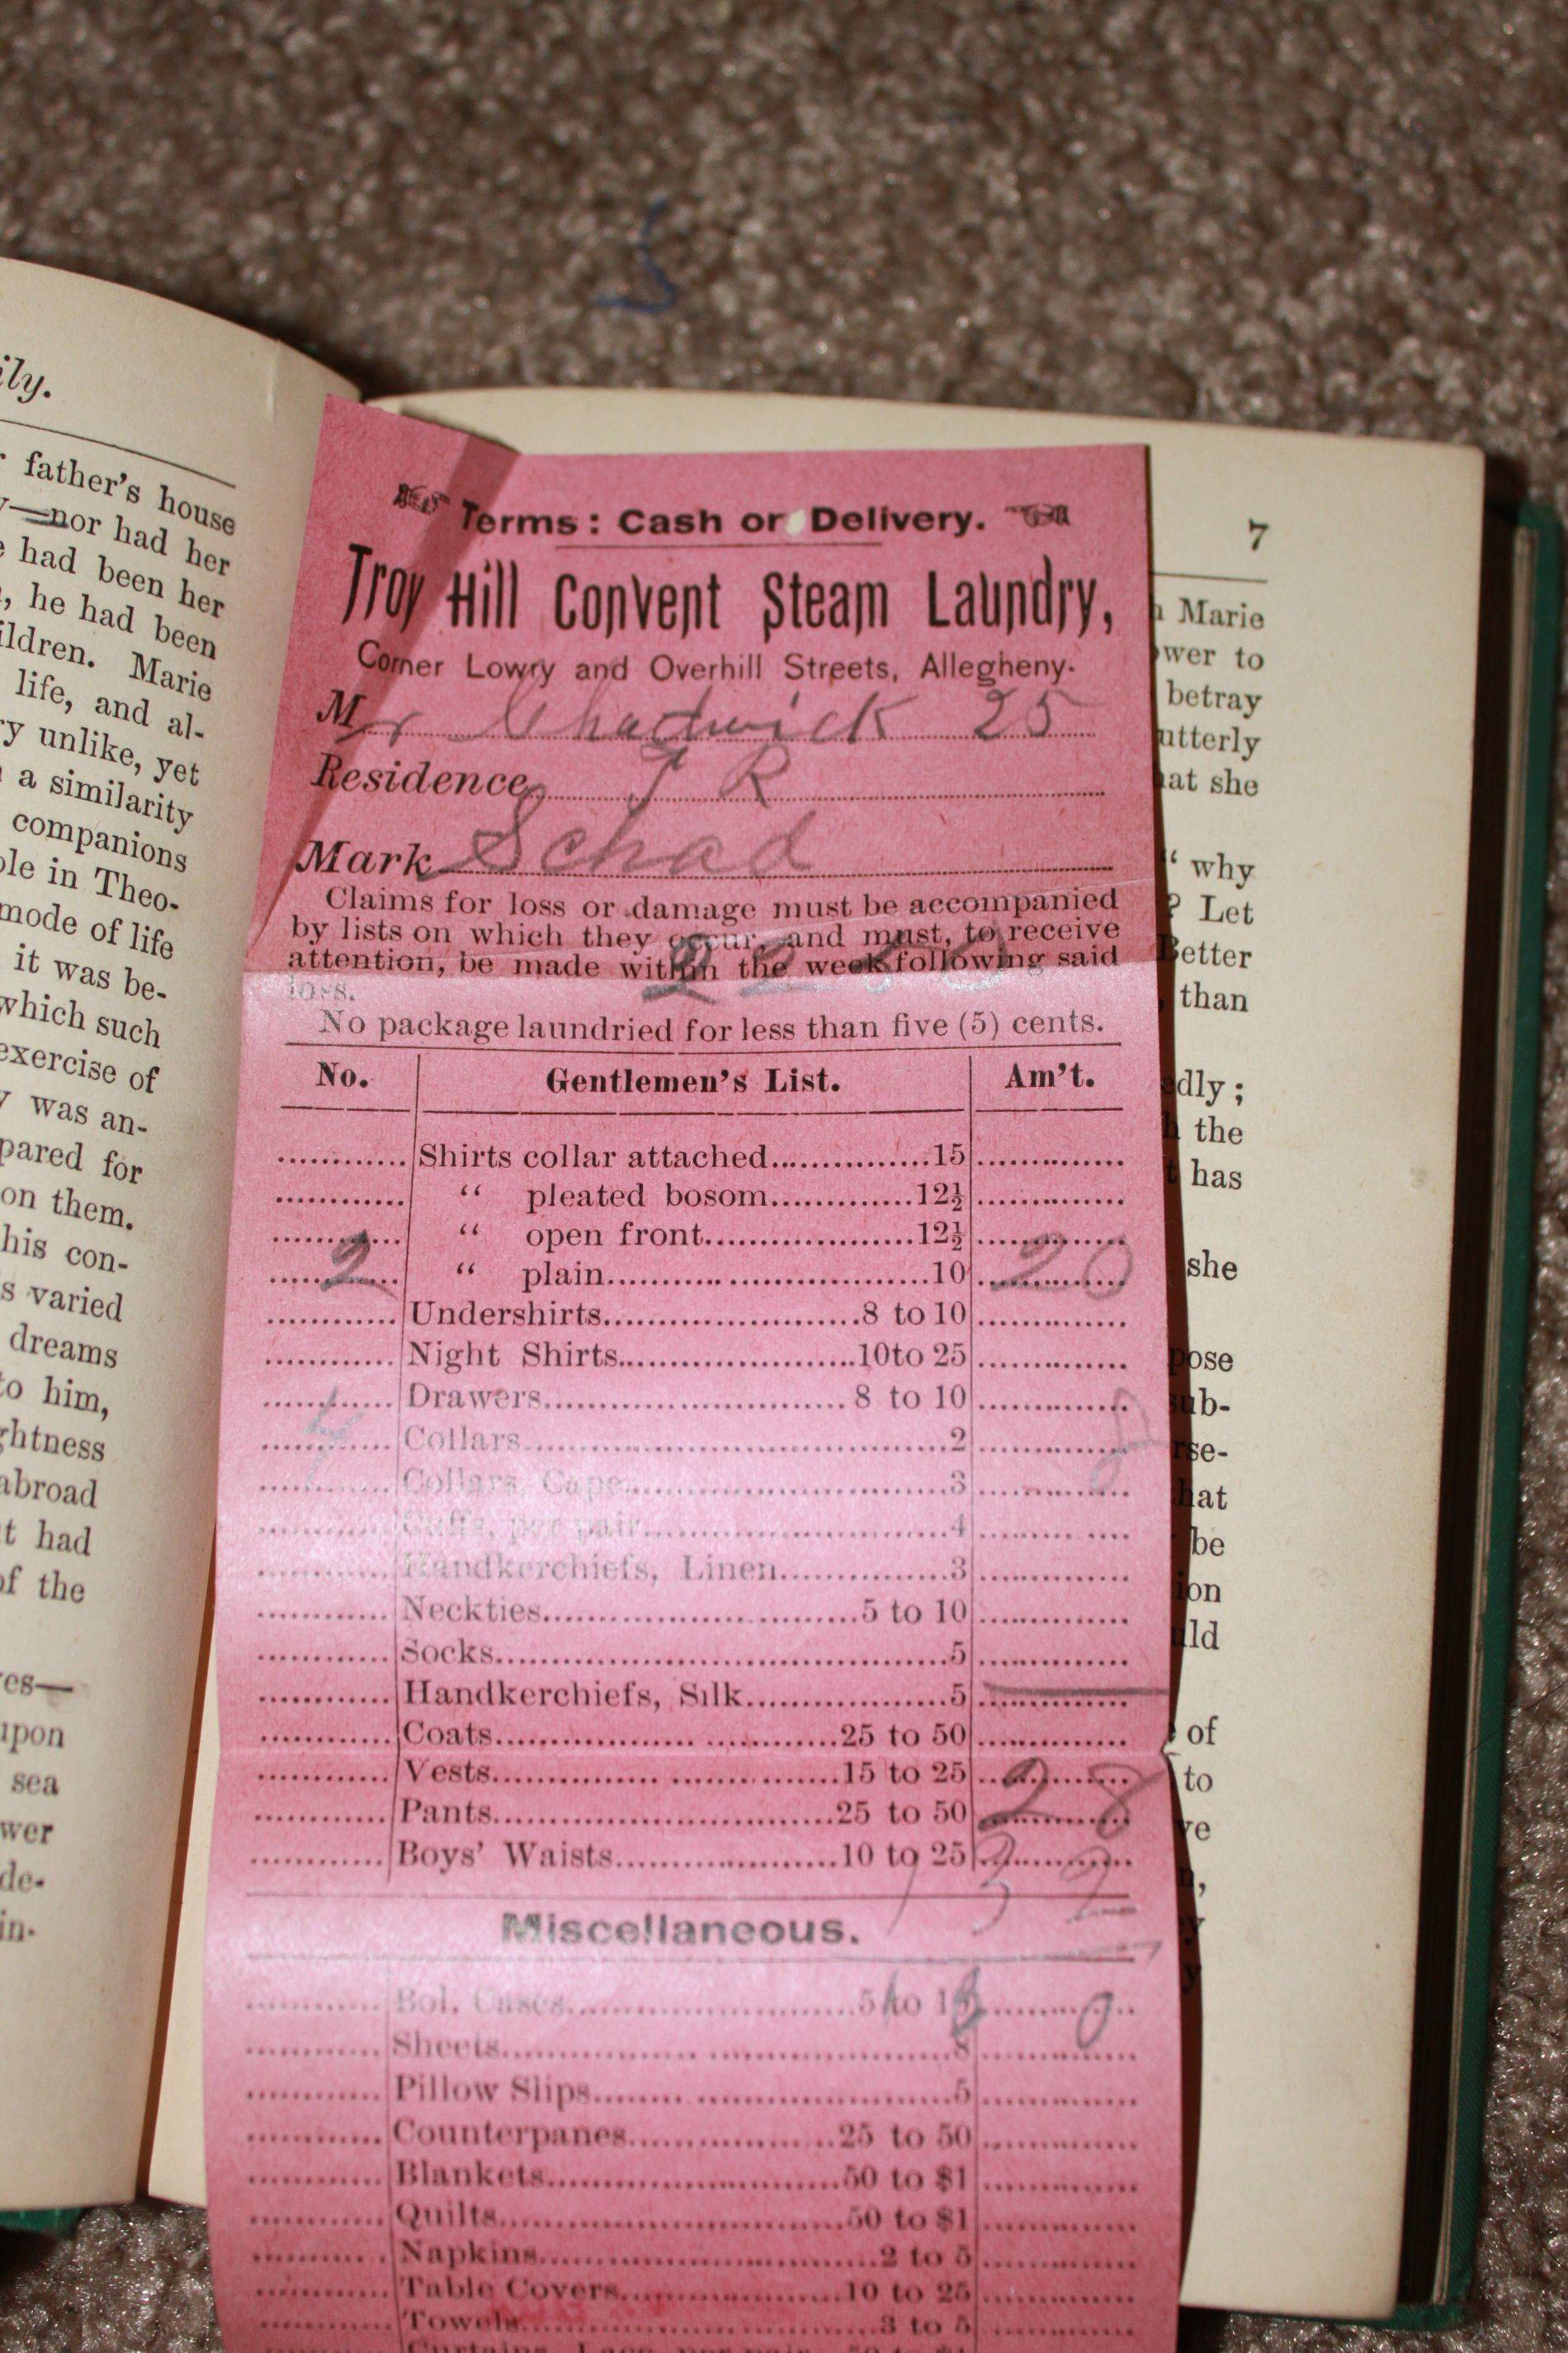 ily.
father's house
—nor had her
had been her
, he had been
ildren. Marie
life, and al-
ry unlike, yet
a similarity
companions
ole in Theo-
mode of life
it was be-
which such
exercise of
was an-
pared for
on them.
his con-
s varied
dreams
to him,
ghtness
abroad
t had
of the
es—
upon
sea
wer
de-
in-
Terms: Cash on Delivery.
Troy Hill Convent Steam Laundry,
Corner Lowry and Overhill Streets, Allegheny.
Mr Chadwick 25
Residence T R
Mark Schad
Claims for loss or damage must be accompanied
by lists on which they occur, and must, to receive
attention, be made within the week following said
loss.
No package laundried for less than five (5) cents.
No. Gentlemen's List. Am't.
Shirts collar attached...............15
“ pleated bosom.............12½
“ open front....................12½
2 “ plain...............................10 20
Undershirts........................8 to 10
Night Shirts......................10to 25
Drawers.............................8 to 10
4 Collars........................................2 8
Collars, Cape...............................3
Cuffs, per pair.............................4
Handkerchiefs, Linen...............3
Neckties..............................5 to 10
Socks...........................................5
Handkerchiefs, Silk...................5
Coats.................................25 to 50
Vests.................................15 to 25
Pants.................................25 to 50 28
Boys' Waists.....................10 to 25
Miscellaneous.
Bol. Cases...........................5 to 1
Sheets..........................................8
Pillow Slips.................................5
Counterpanes....................25 to 50
Blankets.............................50 to $1
Quilts.................................50 to $1
Napkins.................................2 to 5
Table Covers......................10 to 25
Towels...................................3 to 5
7
Marie
wer to
betray
utterly
hat she
“ why
? Let
Better
, than
edly;
the
has
she
pose
sub-
rse-
hat
be
ion
uld
of
to
ve
n,
y
y